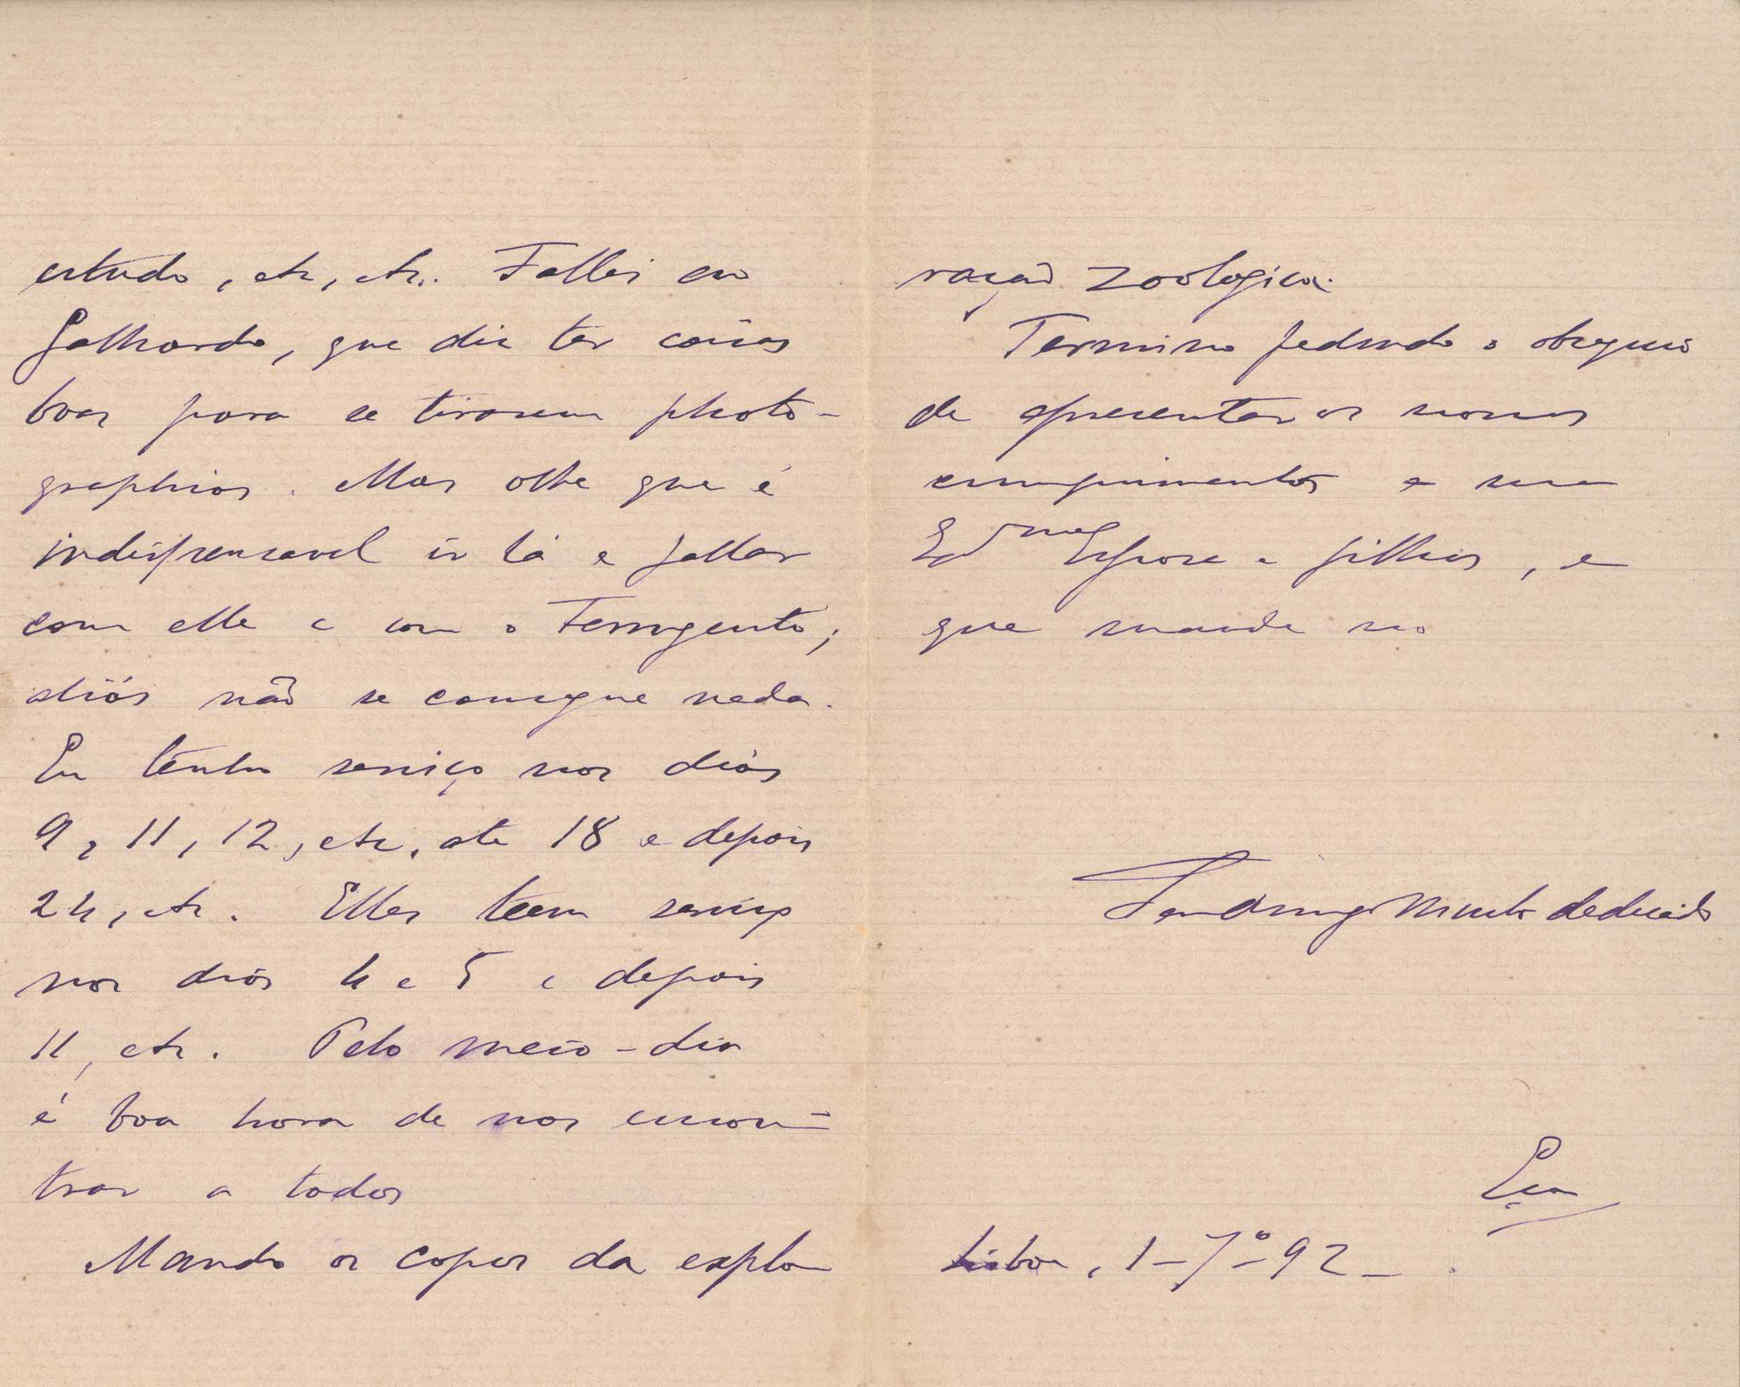 estudo, etc, etc. Fallei ao
Galhardo, que diz ter coisas
boas para se tirarem photo-
graphias. Mas olhe que é
indispensavel ir lá e fallar
com elle e com o Ferrugento;
aliás não se consegue nada.
Eu tenho serviço nos dias
9, 11, 12, etc, até 18 e depois
24, etc. Elles teem serviço
nos dias 4 e 5 e depois
11, etc. Pelo meio-dia
é boa hora de nos encon-
trar a todos
Mando os copos da explo
ração zoologica.
Termino pedindo o obsequio
de apresentar os nossos
cumprimentos a sua
Ex.ma Esposa e filhos, e
que mande no
muito dedicado
Lisboa, 1-7º-92-